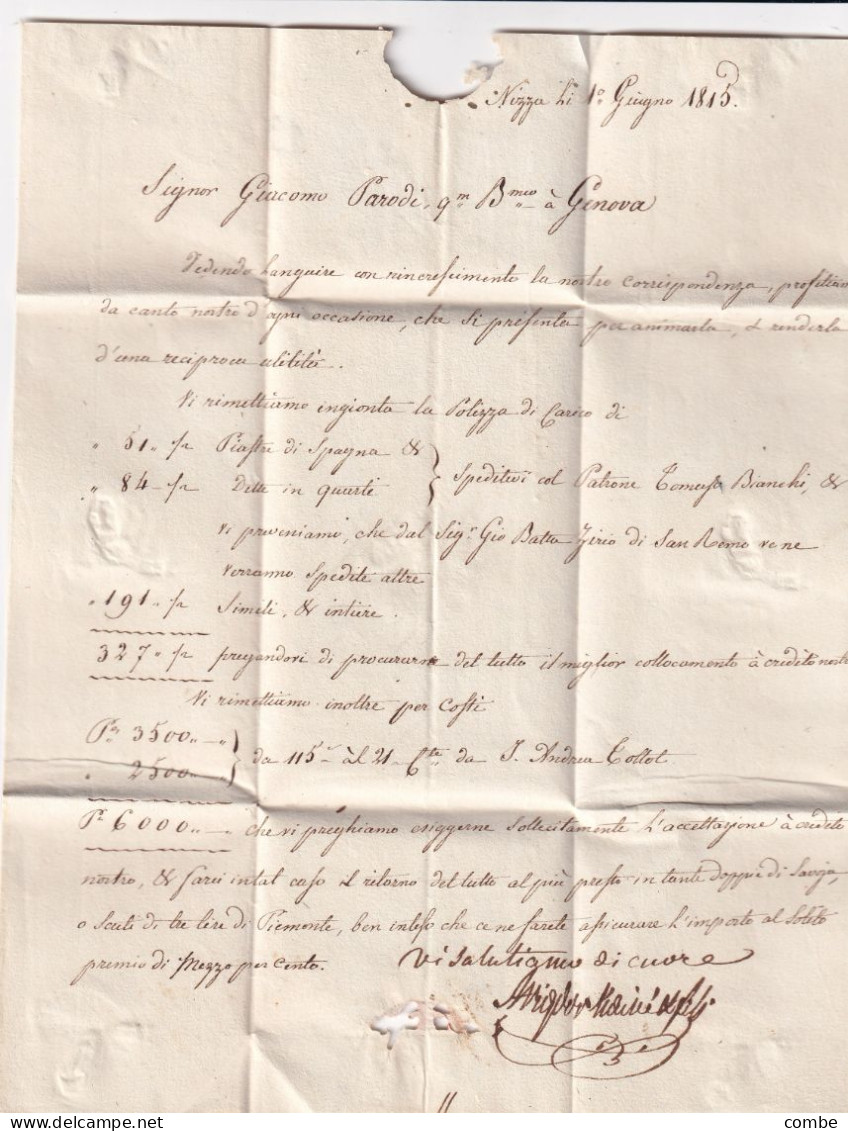 Nizza li 1º Giugno 1815.
Signor Giacomo Parodi, qm Bmeo à Genova
Vedendo languire con rincrescimento la nostra corrispondenza, profitiamo
da canto nostro d'ogni occasione, che si presenta per animarla, & renderla
d'una reciproca utilità.
Vi rimettiamo ingionta la Polizza di Carico di
" 51 " Piastre di Spagna &
" 84 Dette in quarti } speditevi col Patrone Tomaso Bianchi, &
vi preveniamo, che dal Sigr Gio Batta Zirio di San Remo ve ne
verranno spedite altre
" 191 " Simili, & intiere.
327 " pregandovi di procurarne del tutto il miglior collocamento à credito nostro
Vi rimettiamo inoltre per Costì
Pr 3500 "
" 2500 } da 115 àl 21 da J. Andrea Tollot
Pr 6000 " che vi preghiamo esiggerne sollecitamente l'accettazione à credito
nostro, & farci in tal caso il ritorno del tutto al più presto in tante doppie di Savoja,
o Scuti di tre lire di Piemonte, ben inteso che ce ne farete assicurare l'importo al solito
premio di Mezzo per Cento. Vi Salutiamo di cuore
combe